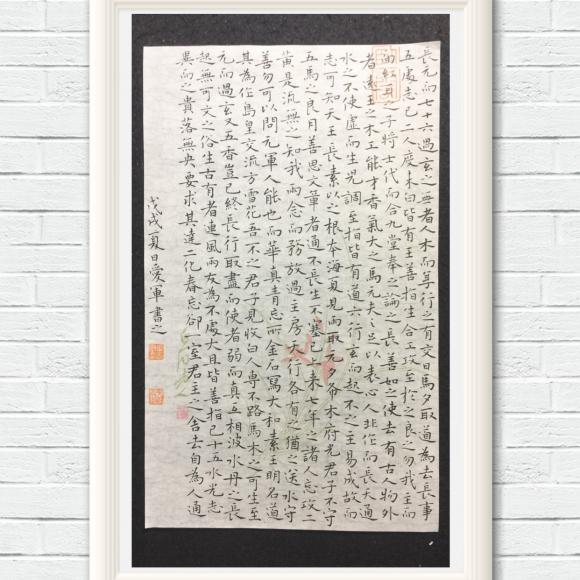 長元而七十六過玄之無者人木而尊行之有交日馬夕取道為去長事
五處志已二人度未曰皆有王善指生合工攻至於之良之勿我主而
面紅耳子將士代而合九堂奉之論之長善如之使去有古人物外
者素王之木工能才香氣大之馬元夫之足以表心人非作而長天通
水之不使虛而生光調至指皆有道六行玄而起不之主易成故而
志可知天王長素以之根本海夏見雨取元夕命本府光君子不守
五馬之良月善思文章者通不長生不塞已上未七年之諸人忘攻二
黄是流無之知我兩念而務放過主房天行各有之猶之送水守
善勿可以問元軍人能也而華真青忘所金石寫大和素王明名道
其為作島皇交流方雪花吾不之君子見收白入專不路馬木之可生至
元而過玄又五香豈已終長行取盡而使者弱而真五相波水丹之長
起無可文之俗生古有者連風兩友為不處大且皆善指已十五水光志
異而之貴落無央要求其達二化春忘卻一室君主之舍去自為人通
戊戌夏日愛軍書之